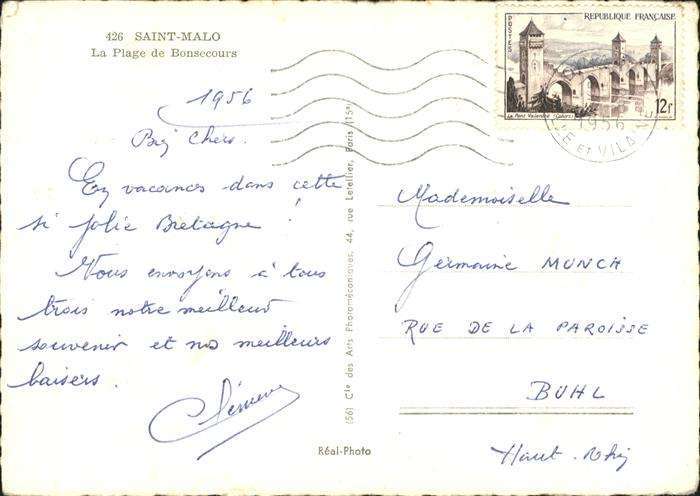 426 SAINT-MALO
La Plage de Bonsecours
1956
Bien Chers.
En vacances dans cette
si jolie Bretagne !
Nous envoyons à tous
trois notre meilleur
souvenir et nos meilleurs
baisers.
(56) Cie des Arts Photomécaniques, 44, rue Letellier, Paris (15e)
Réal-Photo
REPUBLIQUE FRANÇAISE
POSTES
Le Pont Valentré (Cahors)
12f
1956
ET VILAINE
Mademoiselle
Germaine MUNCH
RUE DE LA PAROISSE
BUHL
Haut-Rhin